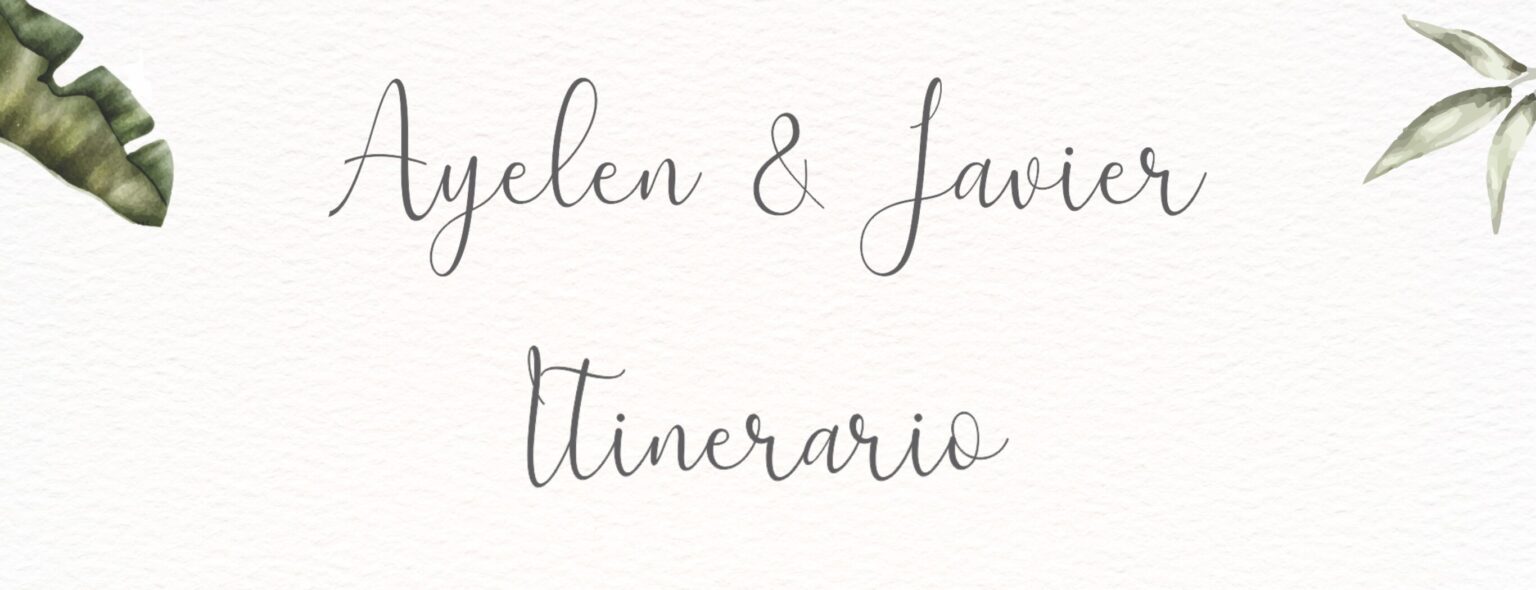 Ayelen & Javier
Itinerario